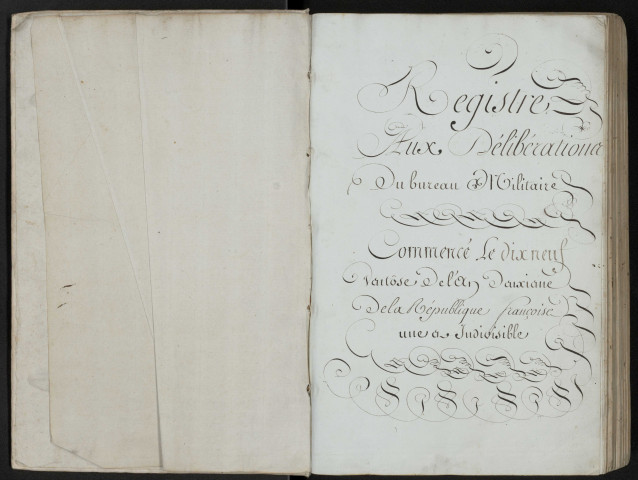 Registre
Aux Délibérations
Du bureau Militaire
Commencé Le dix neuf
Ventôse De l'An Deuxiéme
De la République françoise
une et Indivisible